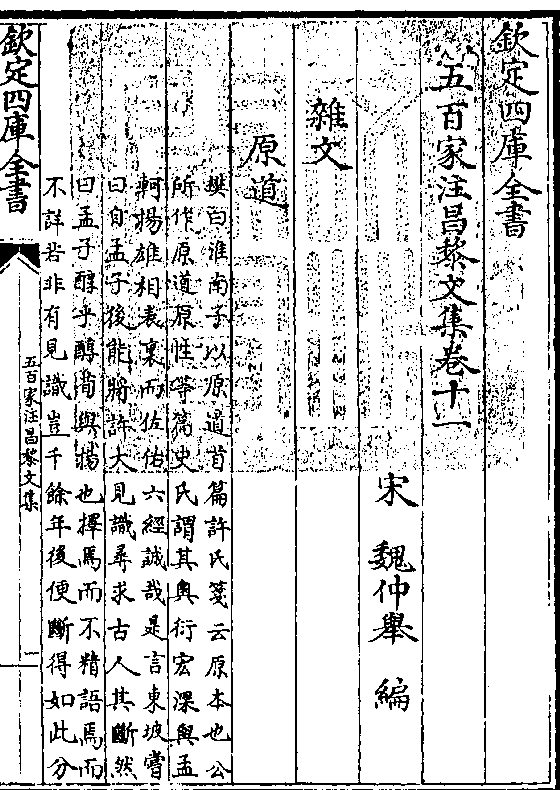 欽定四庫全書
五百家注昌黎文集卷十一
宋 魏仲舉 編
雜文
原道
樊曰淮南子以原道首篇許氏箋云原本也公
所作原道原性等篇史氏謂其奥衍宏深與孟
軻揚雄相表裏而佐佑六經誠哉是言東坡嘗
曰自孟子後能將許大見識尋求古人其斷然
曰孟子醇乎醇荀與揚也擇焉而不精語焉而
不詳若非有見識豈千餘年後便斷得如此分
欽定四庫全書
五百家注昌黎文集
一